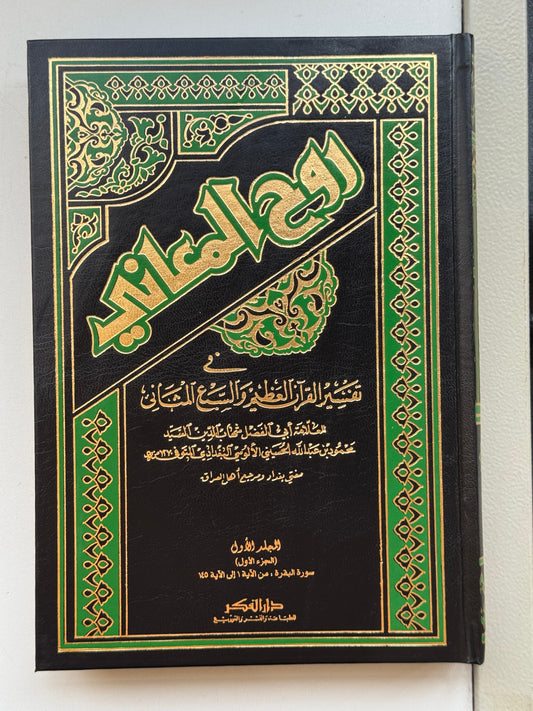 روح المعاني
في
تفسير القرآن العظيم والسبع المثاني
للعلامة أبي الفضل شهاب الدين السيد
محمود بن عبدالله الحسيني الألوسي البغدادي المتوفى ١٢٧٠ هـ
مفتي بغداد ومرجع أهل العراق
المجلد الأول
(الجزء الأول)
سورة البقرة ، من الآية ١ إلى الآية ١٤٥
دار الفكر
للطباعة والنشر والتوزيع